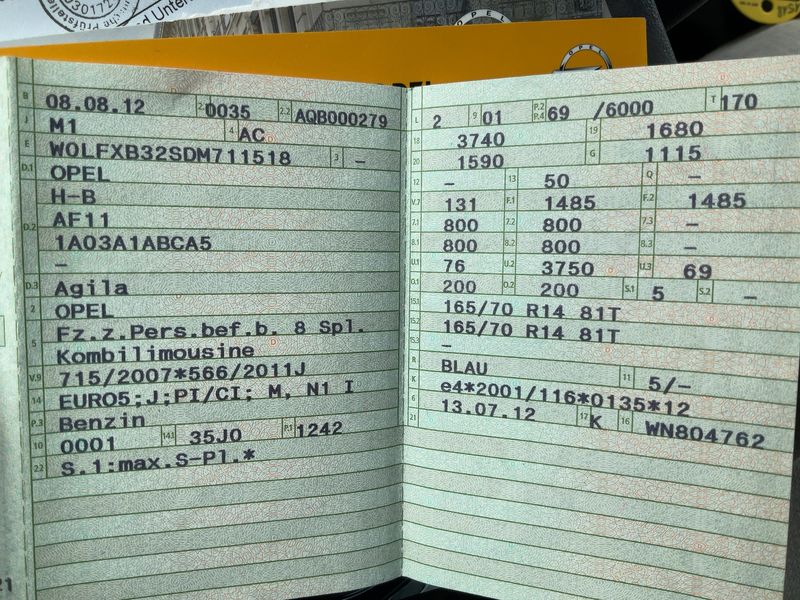 d Unter
OPEL
OPEL
B 08.08.12 2.1 0035 2.2 AQB000279
J M1 4 AC
E W0LFXB32SDM711518 3 –
D.1 OPEL
H-B
D.2 AF11
1A03A1ABCA5
–
D.3 Agila
2 OPEL
5 Fz.z.Pers.bef.b. 8 Spl.
Kombilimousine
V.9 715/2007*566/2011J
14 EURO5;J;PI/CI; M, N1 I
P.3 Benzin
10 0001 14.1 35J0 P.1 1242
22 S.1:max.S-Pl.*
L 2 9 01 P.2 P.4 69 /6000 T 170
18 3740 19 1680
20 1590 G 1115
12 – 13 50 Q –
V.7 131 F.1 1485 F.2 1485
7.1 800 7.2 800 7.3 –
8.1 800 8.2 800 8.3 –
U.1 76 U.2 3750 U.3 69
O.1 200 O.2 200 S.1 5 S.2 –
15.1 165/70 R14 81T
15.2 165/70 R14 81T
15.3 –
R BLAU 11 5/–
K e4*2001/116*0135*12
6 13.07.12 17 K 16 WN804762
21